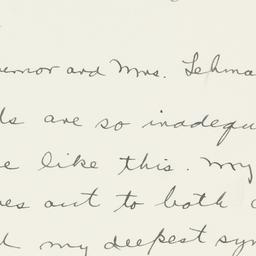 ernor and Mrs. Lehma
ds are so inadequ
e like this. My
es out to both
d my deepest sym